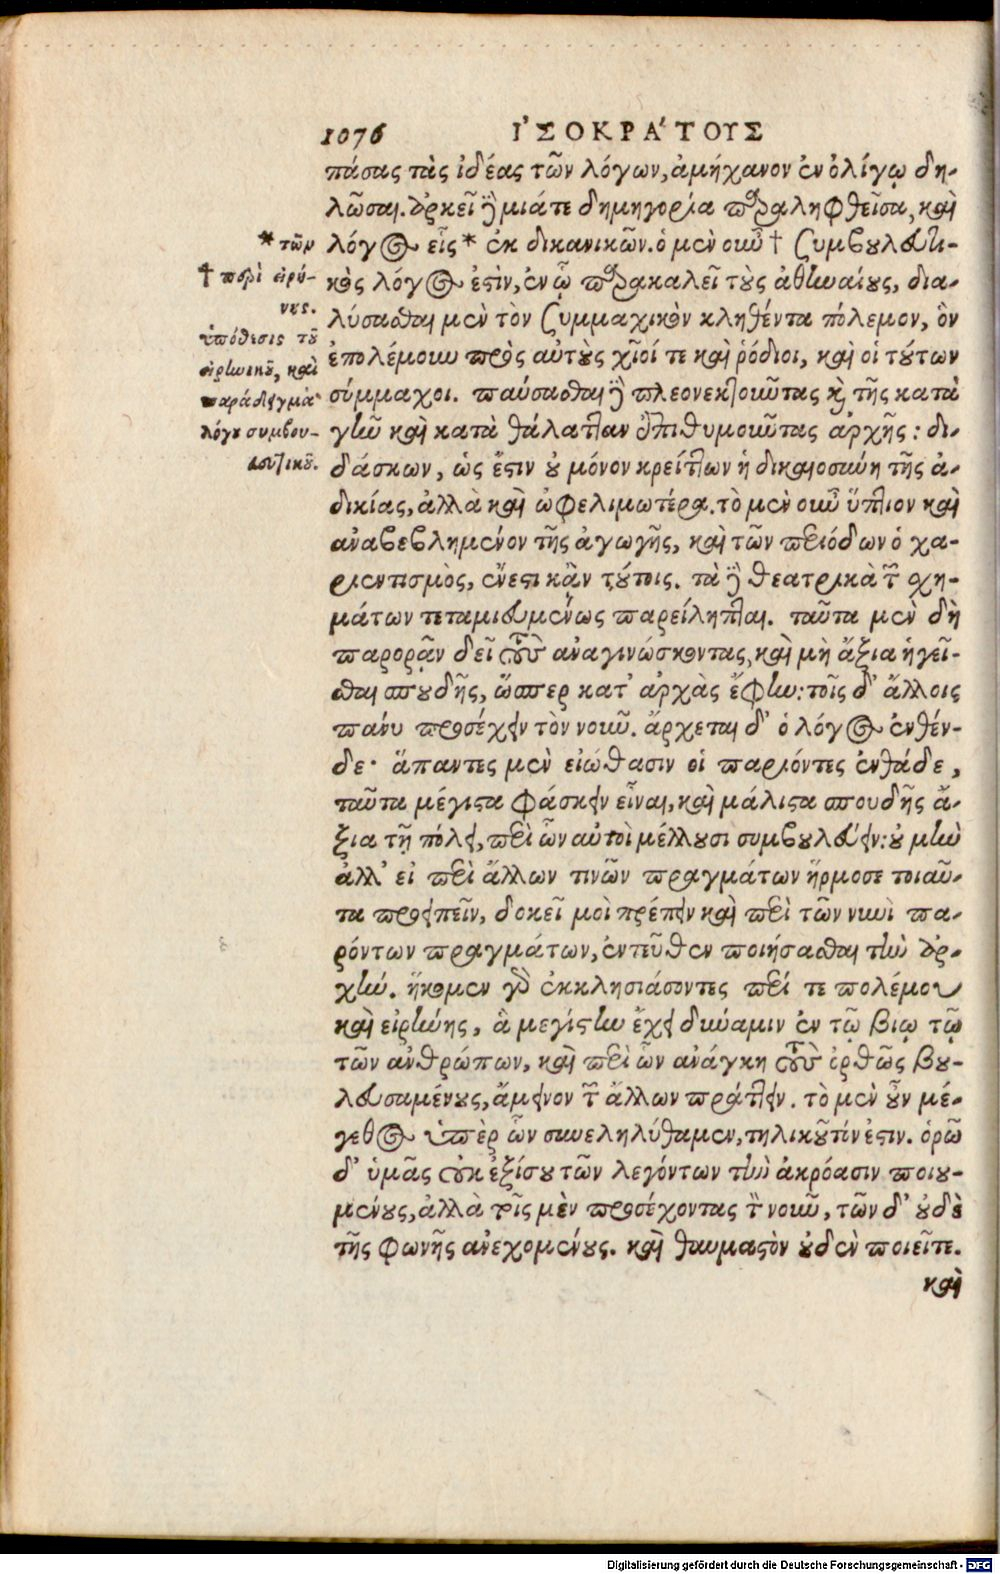 1076 ἸΣΟΚΡΆΤΟΥΣ
πάσας τὰς ἰδέας τῶν λόγων, ἀμήχανον ἐν ὀλίγῳ δη-
λῶσαι. ἀρκεῖ δὲ μιά τε δημηγορία παραληφθεῖσα, καὶ
λόγος εἷς* ἐκ δικανικῶν. ὁ μὲν οὖν † συμβουλευτι-
κὸς λόγος ἐστὶν, ἐν ᾧ παρακαλεῖ τοὺς ἀθηναίους, δια-
λύσασθαι μὲν τὸν συμμαχικὸν κληθέντα πόλεμον, ὃν
ἐπολέμουν πρὸς αὐτοὺς χῖοί τε καὶ ῥόδιοι, καὶ οἱ τούτων
σύμμαχοι. παύσασθαι δὲ πλεονεκτοῦντας καὶ τῆς κατὰ
γῆν καὶ κατὰ θάλατταν ἐπιθυμοῦντας ἀρχῆς: δι-
δάσκων, ὡς ἔστιν οὐ μόνον κρείττων ἡ δικαιοσύνη τῆς ἀ-
δικίας, ἀλλὰ καὶ ὠφελιμωτέρα. τὸ μὲν οὖν ὕπτιον καὶ
ἀναβεβλημένον τῆς ἀγωγῆς, καὶ τῶν περιόδων ὁ χα-
ριεντισμὸς, ἔνεστι κἂν τούτοις. τὰ δὲ θεατρικὰ τῶν σχη-
μάτων τεταμιευμένως παρείληπται. ταῦτα μὲν δὴ
παρορᾷν δεῖ τοὺς ἀναγινώσκοντας, καὶ μὴ ἄξια ἡγεῖ-
σθαι σπουδῆς, ὥσπερ κατ' ἀρχὰς ἔφην: τοῖς δ' ἄλλοις
πάνυ προσέχειν τὸν νοῦν. ἄρχεται δ' ὁ λόγος ἐνθέν-
δε· ἅπαντες μὲν εἰώθασιν οἱ παριόντες ἐνθάδε,
ταῦτα μέγιστα φάσκειν εἶναι, καὶ μάλιστα σπουδῆς ἄ-
ξια τῇ πόλει, περὶ ὧν αὐτοὶ μέλλουσι συμβουλεύειν: οὐ μὴν
ἀλλ' εἰ περὶ ἄλλων τινῶν πραγμάτων ἥρμοσε τοιαῦ-
τα προειπεῖν, δοκεῖ μοὶ πρέπειν καὶ περὶ τῶν νυνὶ πα-
ρόντων πραγμάτων, ἐντεῦθεν ποιήσασθαι τὴν ἀρ-
χήν. ἥκομεν γὰρ ἐκκλησιάσοντες περί τε πολέμου
καὶ εἰρήνης, ἃ μεγίστην ἔχει δύναμιν ἐν τῷ βίῳ τῷ
τῶν ἀνθρώπων, καὶ περὶ ὧν ἀνάγκη τοὺς ὀρθῶς βου-
λευσαμένους, ἄμεινον τῶν ἄλλων πράττειν. τὸ μὲν οὖν μέ-
γεθος ὑπὲρ ὧν συνεληλύθαμεν, τηλικοῦτόν ἐστιν. ὁρῶ
δ' ὑμᾶς οὐκ ἐξίσου τῶν λεγόντων τὴν ἀκρόασιν ποιου-
μένους, ἀλλὰ τοῖς μὲν προσέχοντας τὸν νοῦν, τῶν δ' οὐδὲ
τῆς φωνῆς ἀνεχομένους. καὶ θαυμαστὸν οὐδὲν ποιεῖτε.
καὶ
* τῶν
† περὶ εἰρή-
νης.
ὑπόθεσις τοῦ
εἰρηνικοῦ, καὶ
παράδειγμα
λόγου συμβου-
λευτικοῦ.
Digitalisierung gefördert durch die Deutsche Forschungsgemeinschaft - DFG